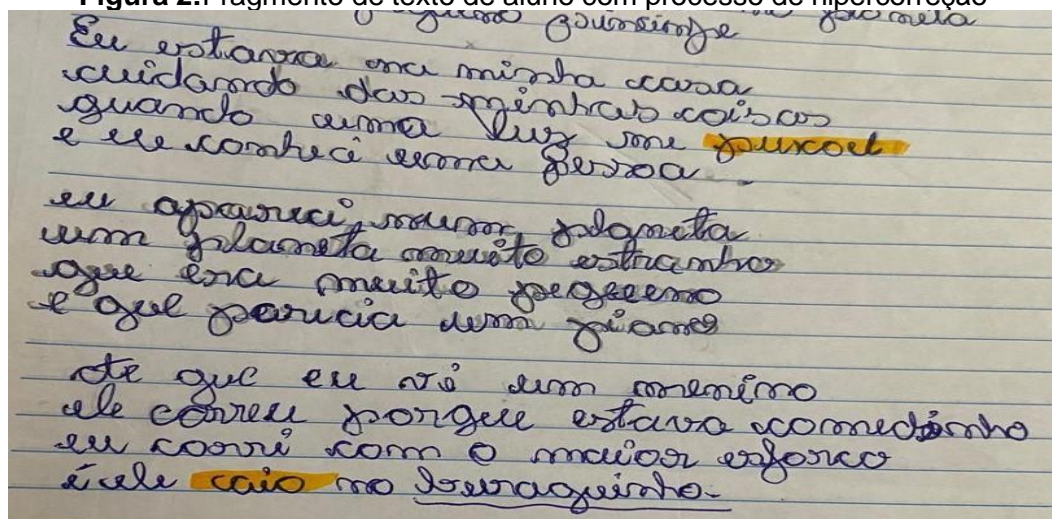 Figura 2.Fragmento de texto de aluno com processo de hipercorreção
O pequeno principe planeta
Eu estava na minha casa
cuidando das minhas coisas
quando uma luz me puxoel
e eu conheci uma pessoa
eu apareci, num planeta
um planeta muito estranho
que era muito pequeno
e que parecia um piano
Ate que eu vi um menino
ele correu porque estava comedinho
eu corri com o maior esforco
é ele caio no buraquinho.